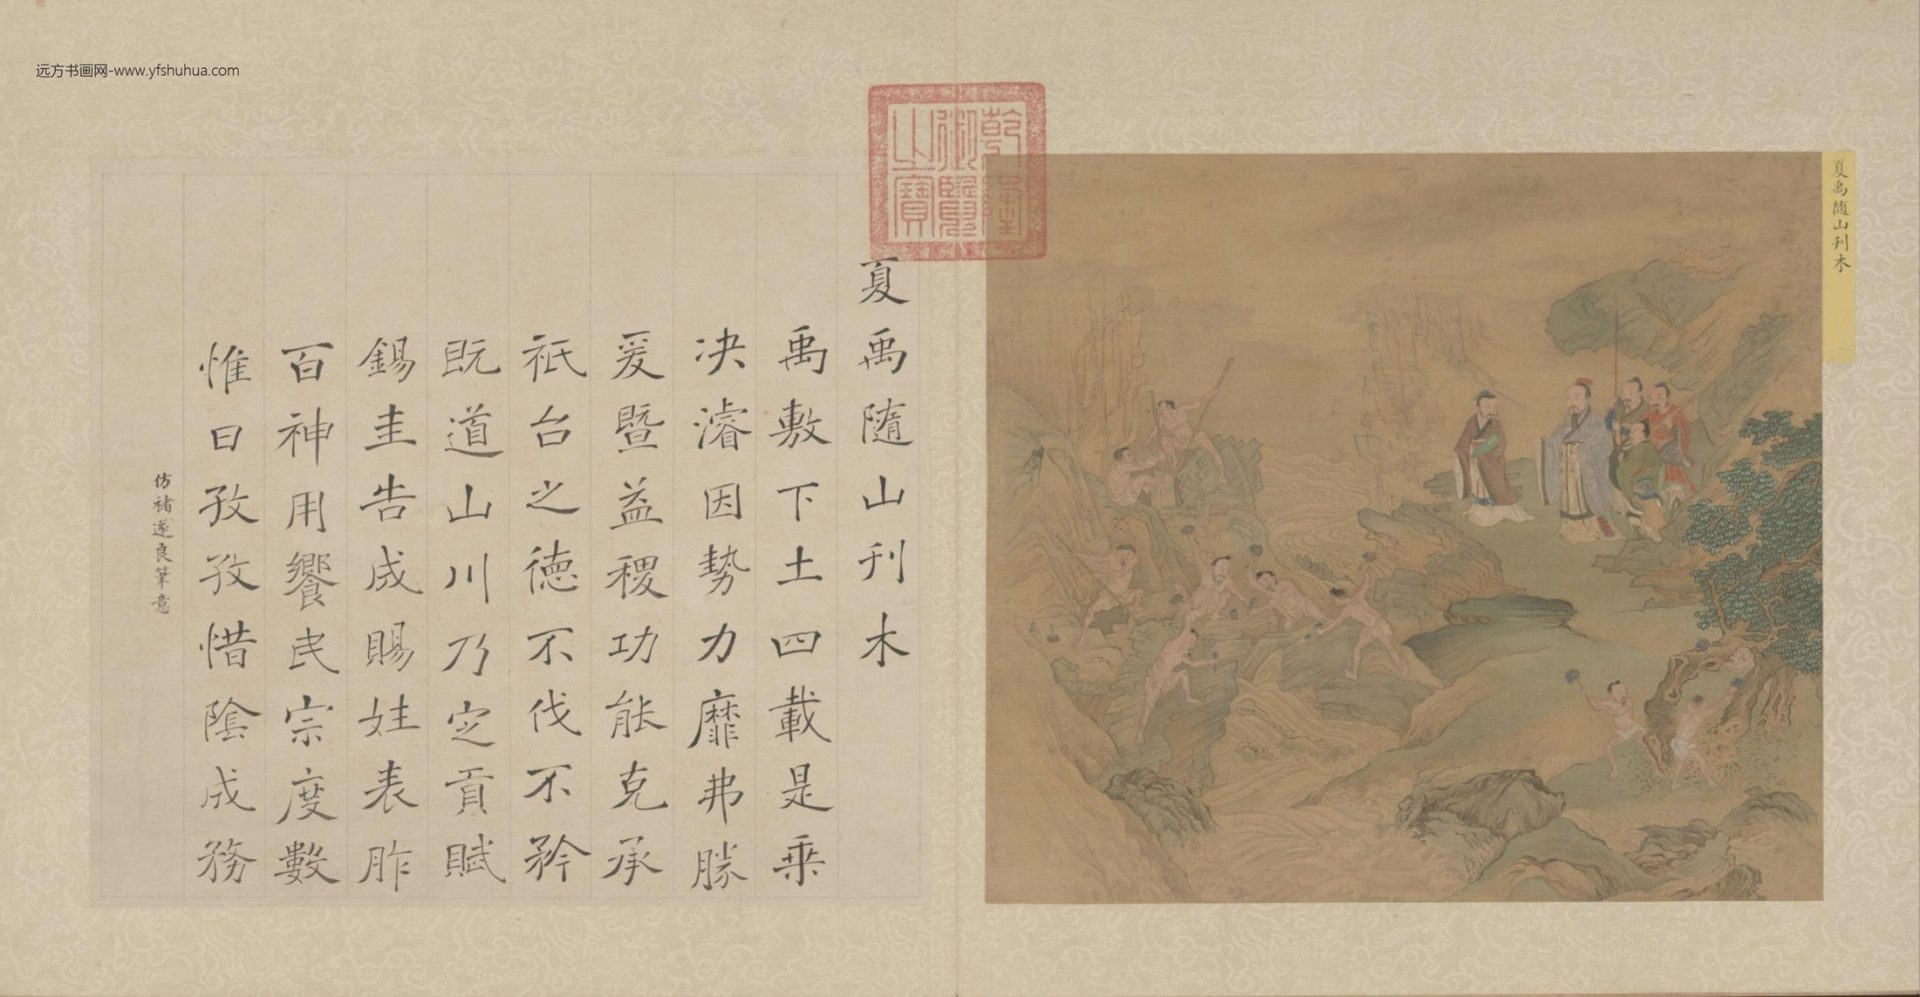 远方书画网-www.yfshuhua.com
夏禹随山刊木
乾隆御覽之寶
夏禹隨山刊木
禹敷下土四載是乗
决濬因勢力靡弗勝
爰暨益稷功能克承
祇台之德不伐不矜
既道山川乃定貢賦
錫圭告成賜姓表胙
百神用饗民宗度數
惟日孜孜惜陰成務
仿褚遂良筆意